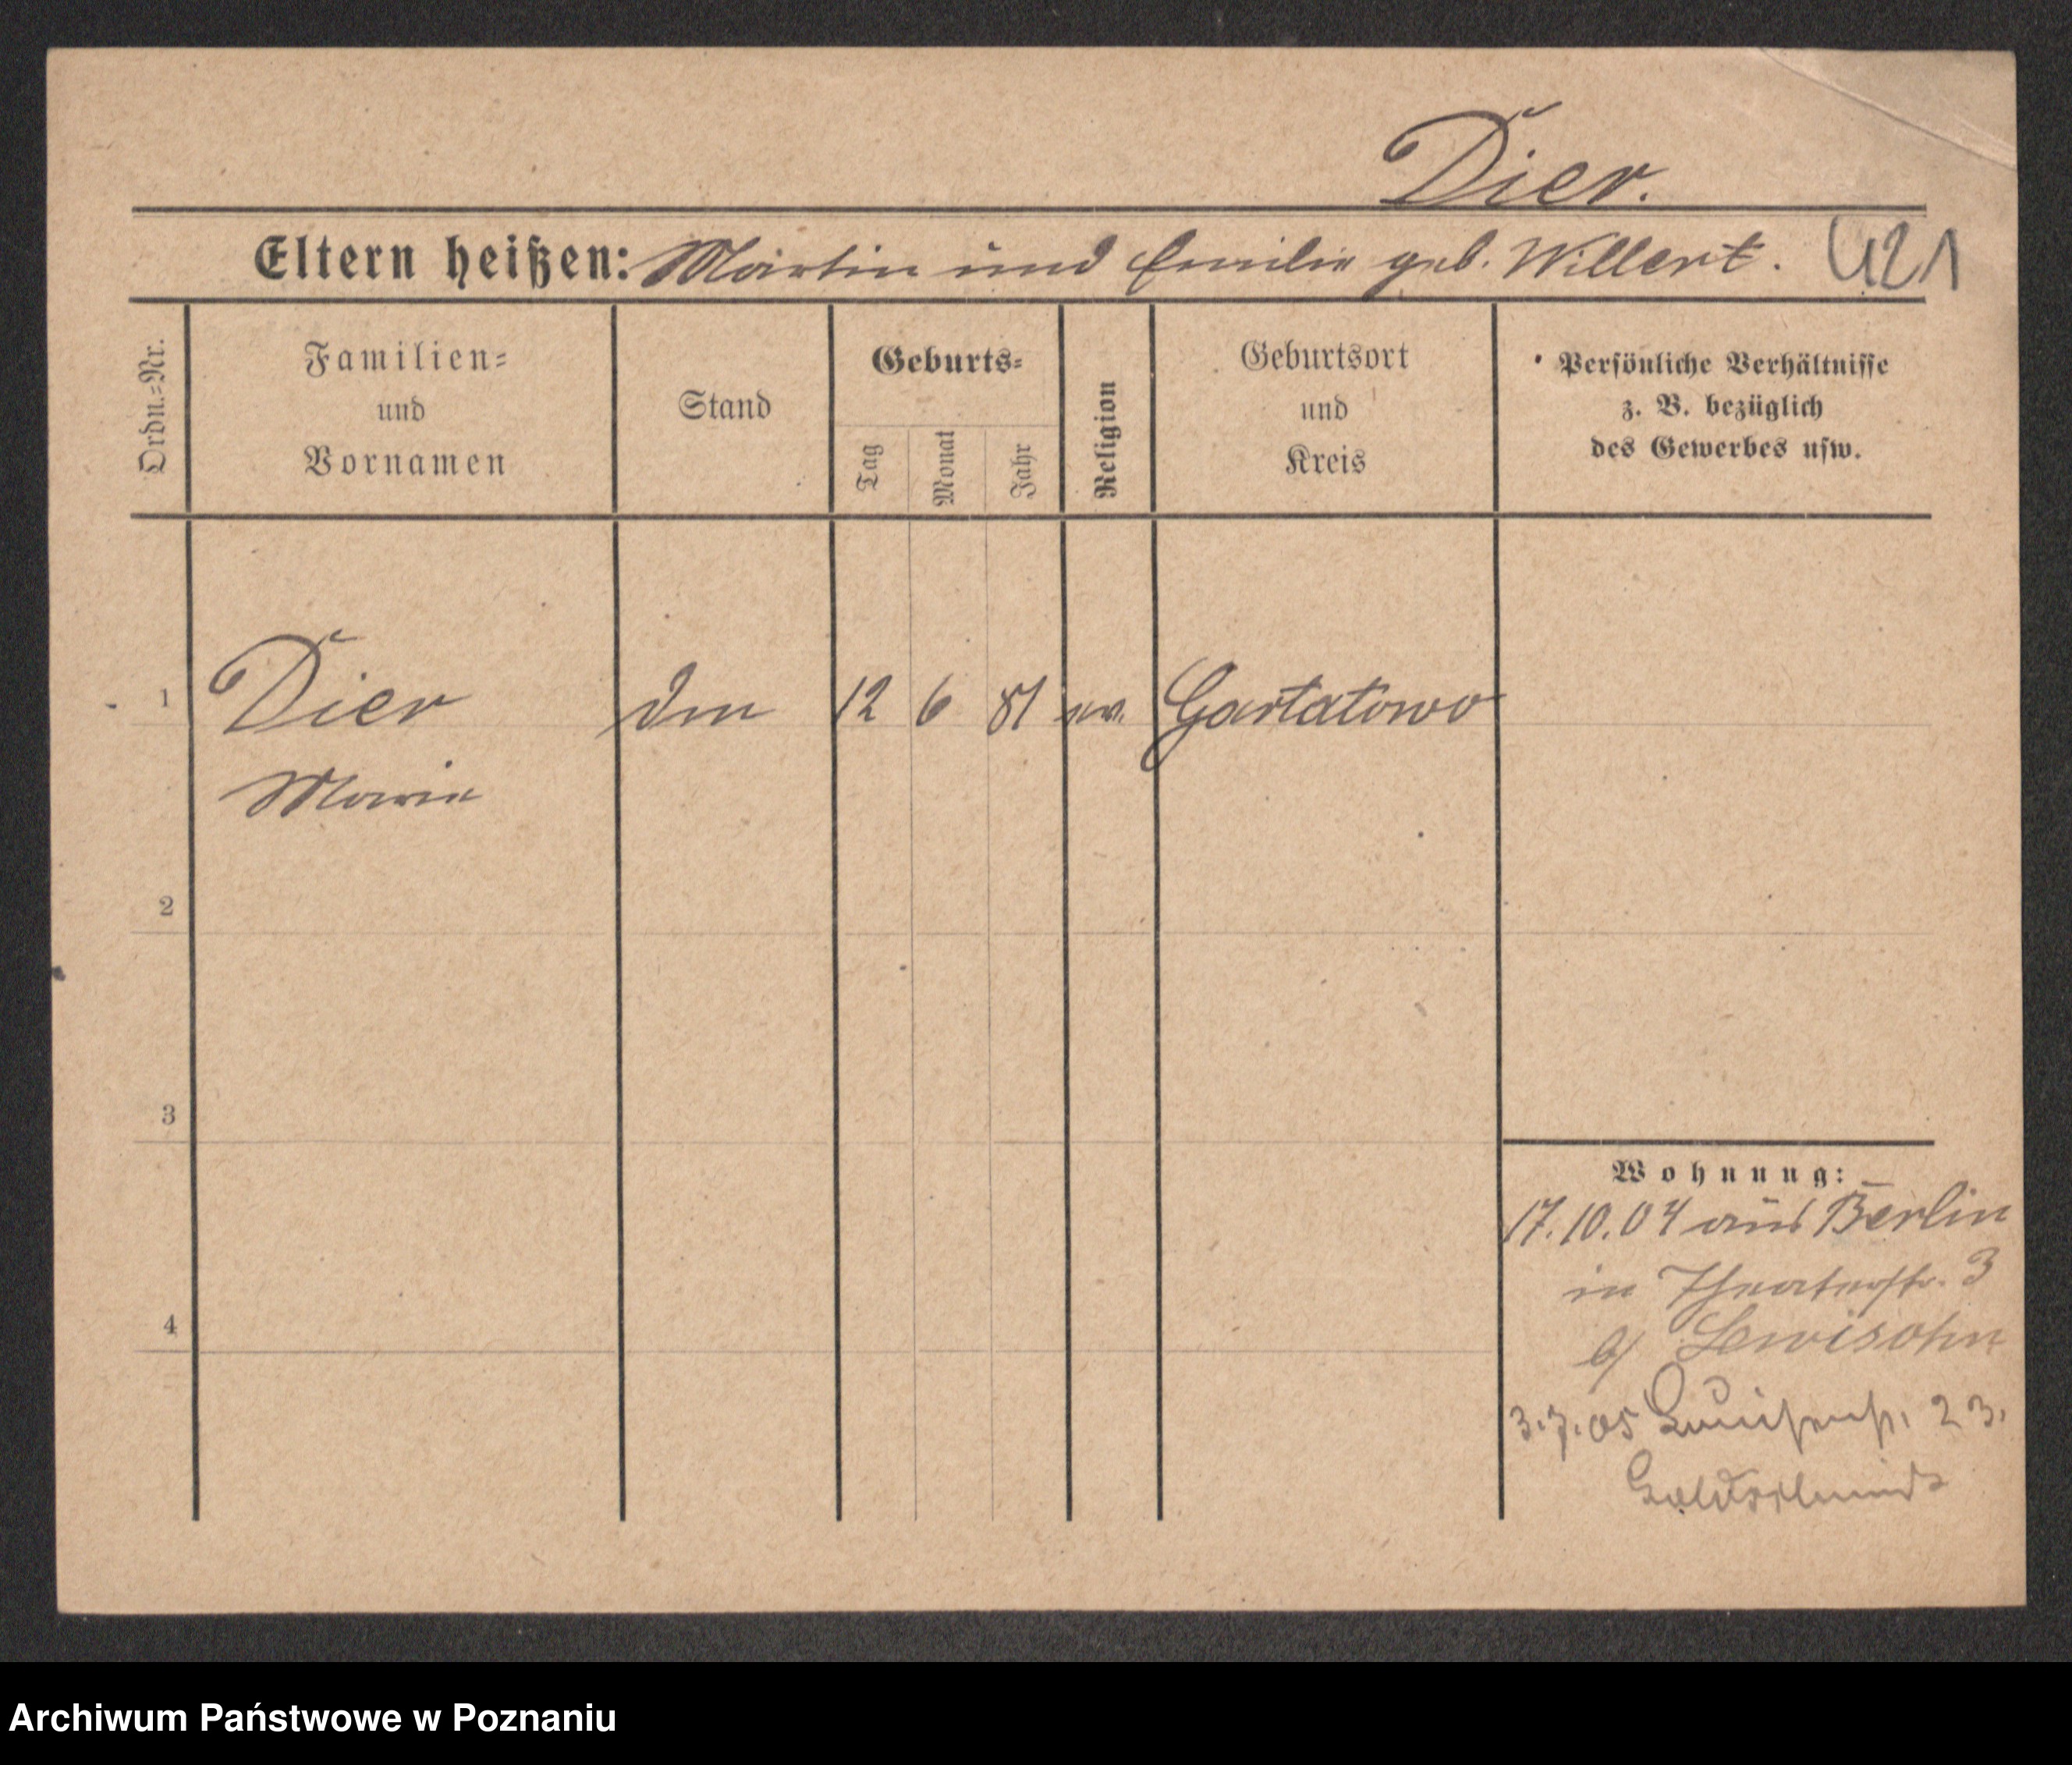 Dier.
Eltern heißen: Martin und Emilie geb. Willert. 421
Ordn.=Nr.
Familien=
und
Vornamen
Stand
Geburts=
Tag
Monat
Jahr
Religion
Geburtsort
und
Kreis
Persönliche Verhältnisse
z. B. bezüglich
des Gewerbes usw.
1 Dier 12 6 81 ev. Gartatowo
Marie
2
3
4
Wohnung:
17.10.04 aus Berlin
in Theaterstr. 3
b/ Lewisohn
3.7.05 Luisenstr. 23.
Goldschmidt
Archiwum Państwowe w Poznaniu